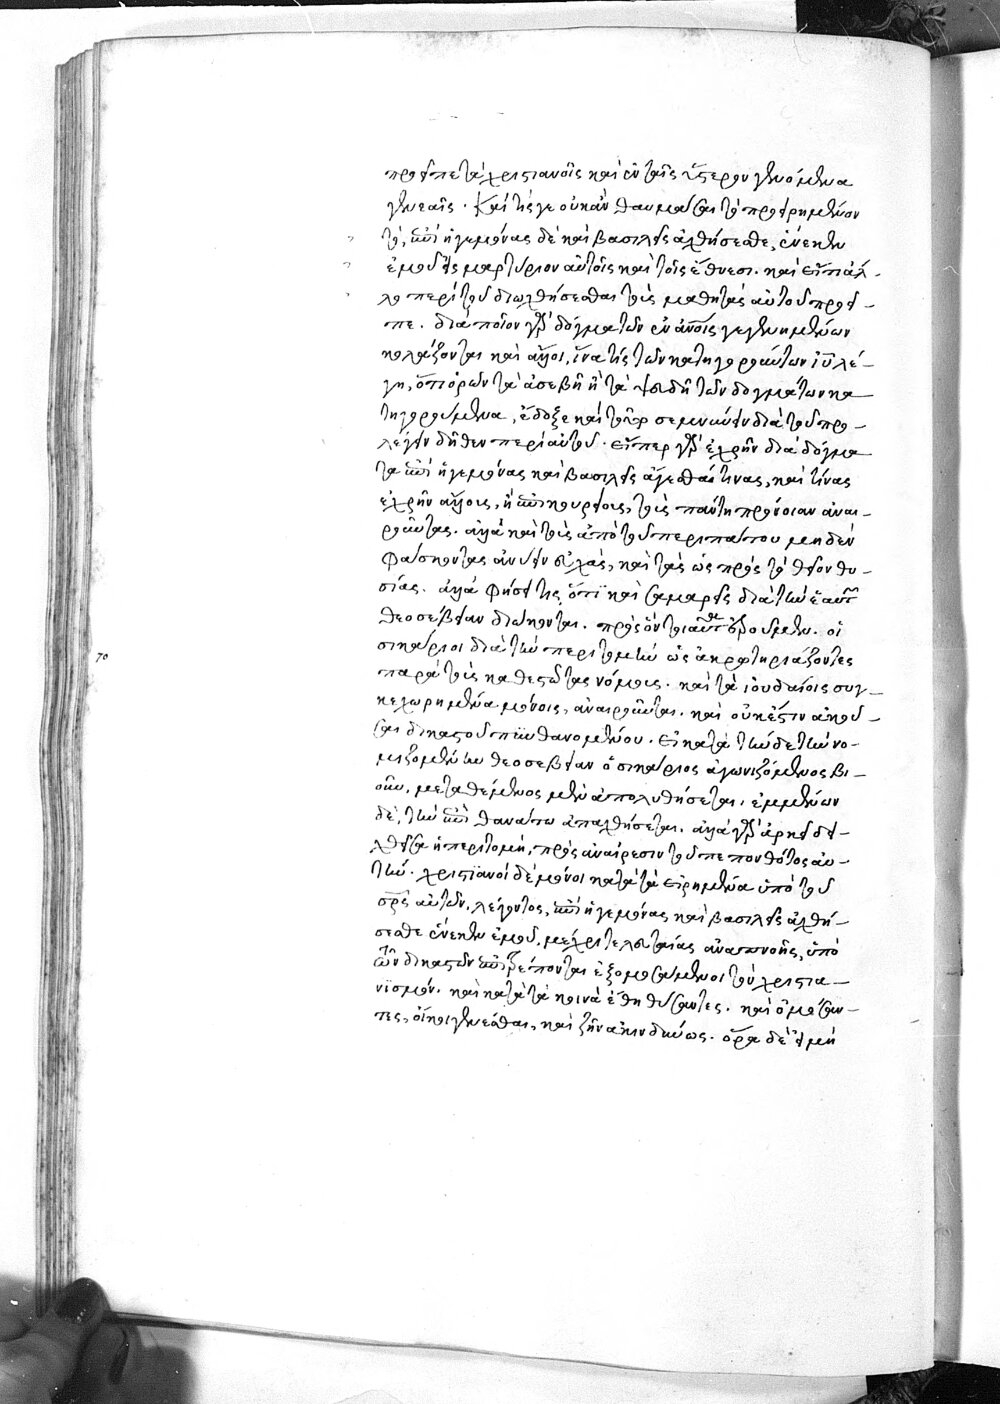 προεῖπε τὰ χριστιανοῖς καὶ ἐν ταῖς ὕστερον γενομένα
γενεαῖς. Καὶ τίς γε οὐκ ἂν θαυμάσαι τὸ προειρημένον
τὸ, ἐπὶ ἡγεμόνας δὲ καὶ βασιλεῖς ἀχθήσεσθε, ἕνεκεν
ἐμοῦ εἰς μαρτύριον αὐτοῖς καὶ τοῖς ἔθνεσι. καὶ εἴ τι ἄλ-
λο περὶ τοῦ διωχθήσεσθαι τοὺς μαθητὰς αὐτοῦ προεῖ-
πε. διὰ ποῖον γὰρ δόγμα τῶν ἐν ἀνοις γεγενημένων
κολάζονται καὶ ἄλλοι, ἵνα τίς τῶν κατηγορούντων ἰῦ λέ-
γῃ, ὅτι ὁρῶν τὰ ἀσεβῆ ἢ τὰ ψευδῆ τῶν δογμάτων κα
τηγορούμενα, ἔδοξε καὶ τοῦτο σεμνύνειν διὰ τοῦ προ-
λέγειν δῆθεν περὶ αὐτοῦ. εἴπερ γὰρ ἐχρῆν διὰ δόγμα
τα ἐπὶ ἡγεμόνας καὶ βασιλεῖς ἄγεσθαί τινας, καὶ τίνας
ἐχρῆν ἄλλους, ἢ ἐπικουρείους, τοὺς πάντη πρόνοιαν ἀναι-
ροῦντας. ἀλλὰ καὶ τοὺς ἀπὸ τοῦ περιπάτου μηδὲν
φάσκοντας ἀνύειν εὐχὰς, καὶ τὰς ὡς πρὸς τὸ θεῖον θυ-
σίας. ἀλλὰ φήσει τις, ὅτι καὶ σαμαρεῖς διὰ τὴν ἑαυτῶν
θεοσέβειαν διώκονται. πρὸς ὃν τοιαῦτα ἐροῦμεν. οἱ
σικάριοι διὰ τὴν περιτομὴν ὡς ἀκρωτηριάζοντες
παρὰ τοὺς καθεστῶτας νόμους. καὶ τὰ ἰουδαίοις συγ-
κεχωρημένα μόνοις, ἀναιροῦνται. καὶ οὐκ ἔστιν ἀκοῦ-
σαι δικαστοῦ πυνθανομένου. εἰ κατὰ τήνδε τὴν νο-
μιζομένην θεοσέβειαν ὁ σικάριος ἀγωνιζόμενος βι-
οῦν, μεταθέμενος μὲν ἀπολυθήσεται, ἐμμένων
δὲ, τὴν ἐπὶ θανάτω ἀπαχθήσεται. ἀλλὰ γὰρ ἀρκεῖ δει-
χθεῖσα ἡ περιτομή, πρὸς ἀναίρεσιν τοῦ πεπονθότος αὐ-
τήν. χριστιανοὶ δὲ μόνοι κατὰ τὰ εἰρημένα ὑπὸ τοῦ
σρς αὐτῶν, λέγοντος, ἐπὶ ἡγεμόνας καὶ βασιλεῖς ἀχθή-
σεσθε ἕνεκεν ἐμοῦ, μέχρι τελευταίας ἀναπνοῆς, ὑπὸ
τῶν δικαστῶν ἐπιτρέπονται ἐξομοσάμενοι τὸν χριστια-
νισμόν. καὶ κατὰ τὰ κοινὰ ἔθη θύσαντες. καὶ ὀμόσαν-
τες, οἴκοι γενέσθαι, καὶ ζῆν ἀκινδύνως. ὅρα δὲ εἰ μὴ
70